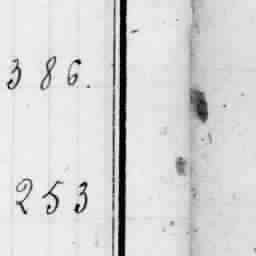 386.
253